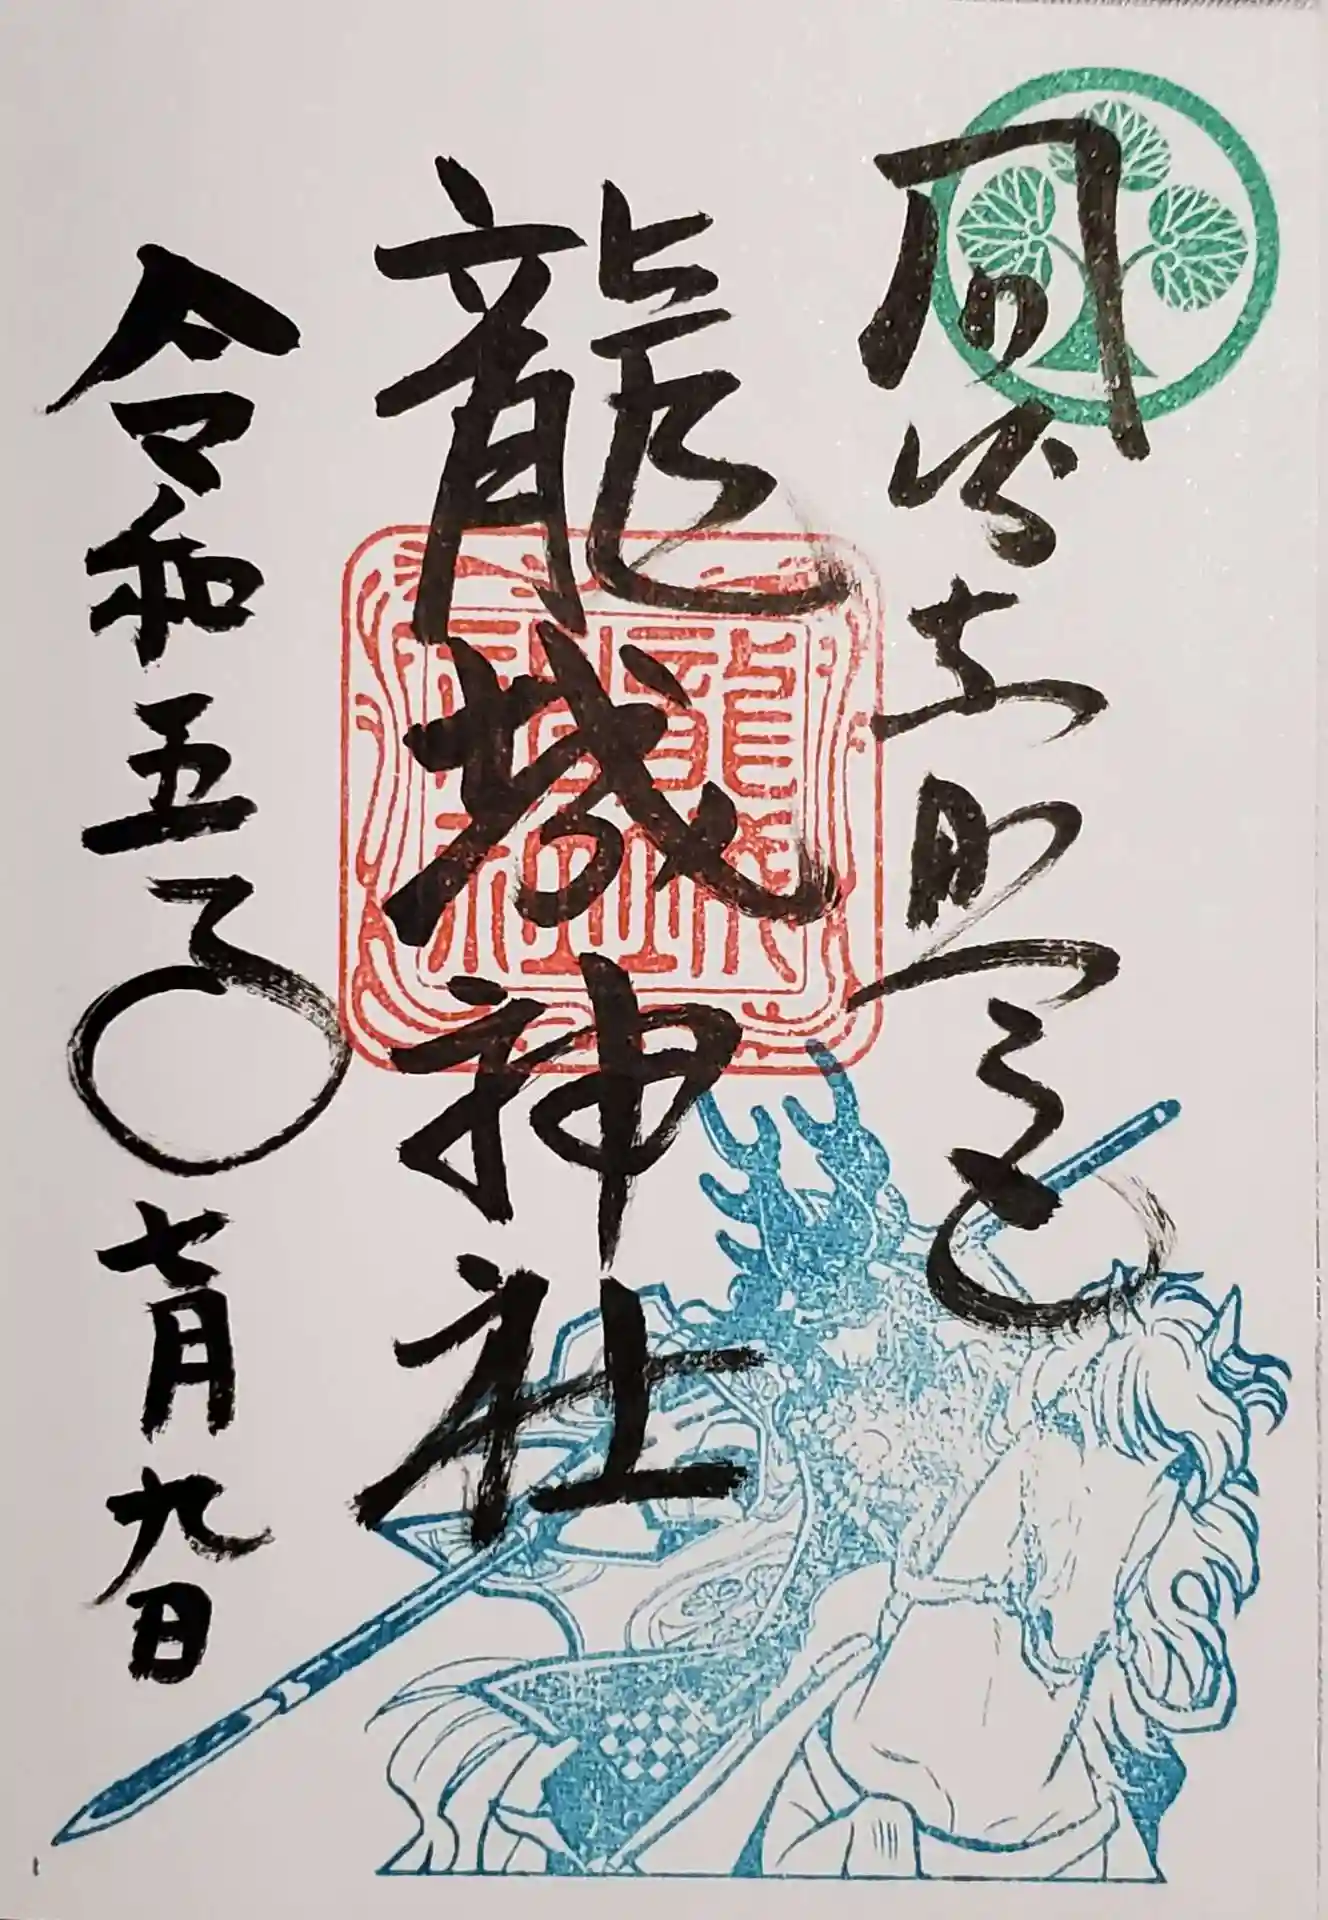 岡崎東照宮
龍城神社
令和五年七月九日
龍城
神社